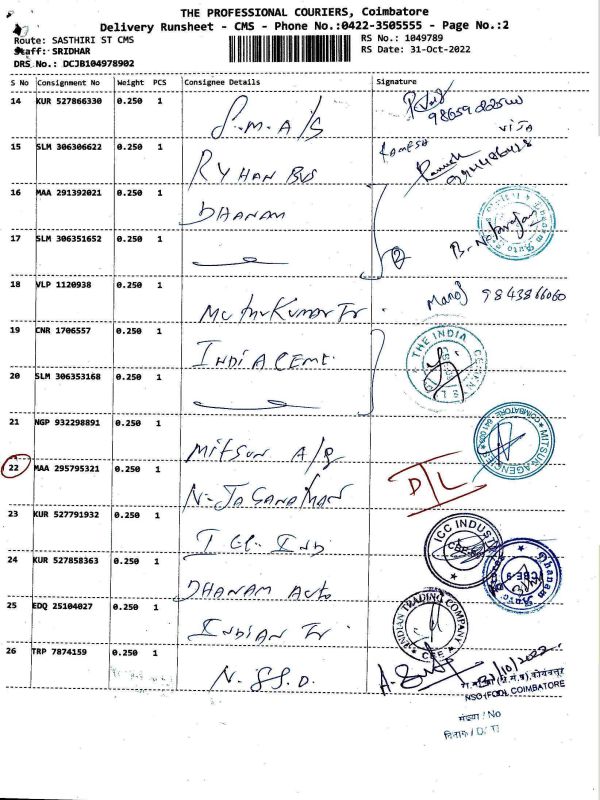 THE PROFESSIONAL COURIERS, Coimbatore
Delivery Runsheet - CMS - Phone No.:0422-3505555 - Page No.:2
Route: SASTHIRI ST CMS
RS No.: 1049789
Staff: SRIDHAR
RS Date: 31-Oct-2022
DRS No.: DCJB104978902
S No Consignment No Weight PCS Consignee Details Signature
14 KUR 527866330 0.250 1 S.M.A/S
15 SLM 306306622 0.250 1 RYHAN BUS Ramesh
16 MAA 291392021 0.250 1 DHANAM
17 SLM 306351652 0.250 1
18 VLP 1120938 0.250 1 MuthuKumar Tr. Manoj 9843866060
19 CNR 1706557 0.250 1 INDIA CEMT. THE INDIA
20 SLM 306353168 0.250 1
21 NGP 932298891 0.250 1 MITSUN A/g MITSUN AGENCIES COIMBATORE
22 MAA 295795321 0.250 1 N. JAGANATHAN D/L
23 KUR 527791932 0.250 1 ICC. Ind ICC INDUST
24 KUR 527858363 0.250 1 DHANAM Auto Dhanam Auto CBE-9
25 EDQ 25104027 0.250 1 INDIAN Tr INDIAN TRADING COMPANY
26 TRP 7874159 0.250 1 N.SS.D.
NSG (FOD), COIMBATORE
संख्या / No
दिनांक /